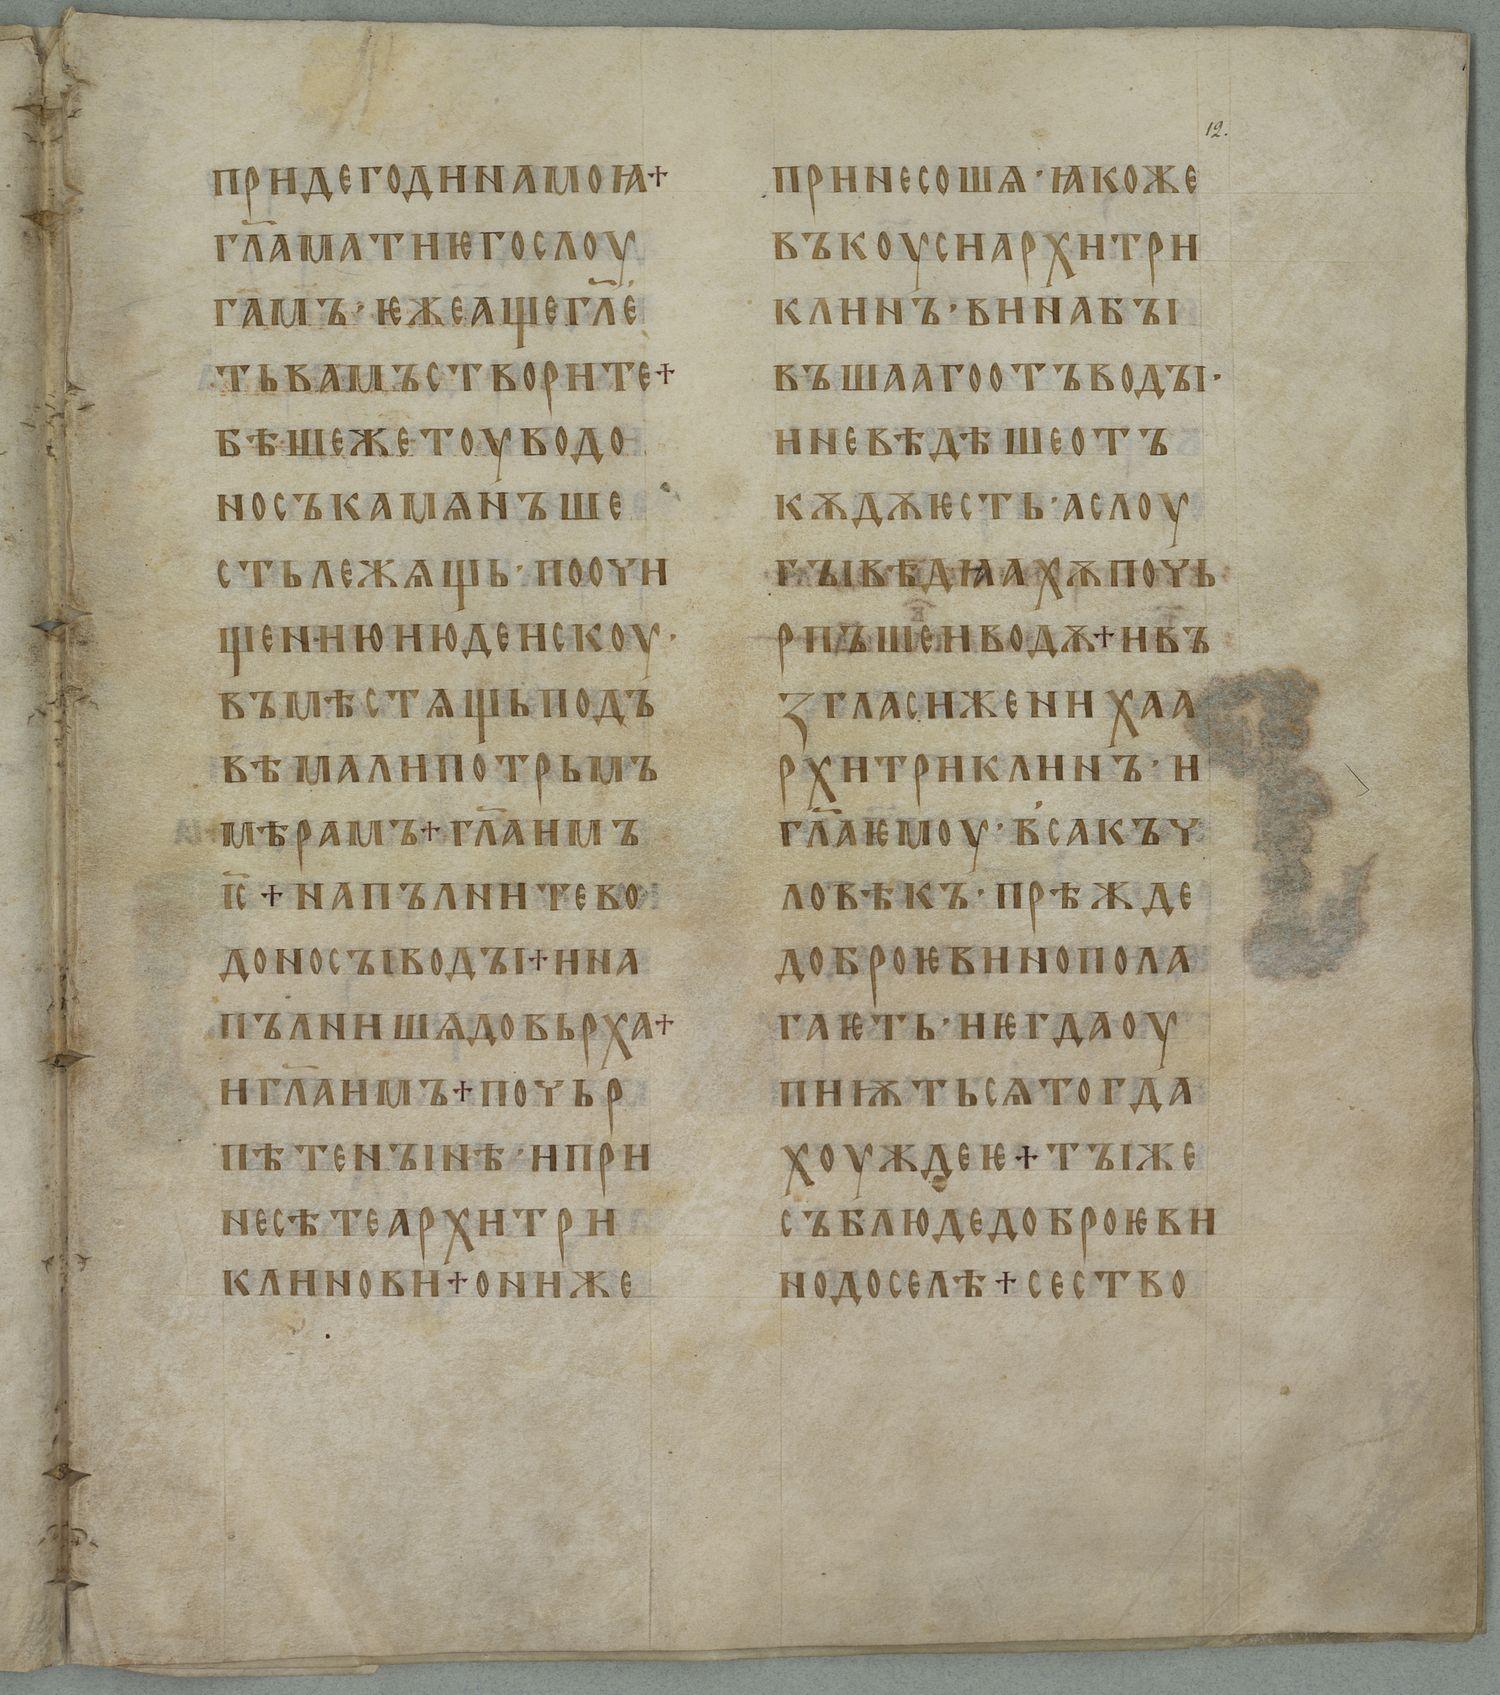 12.
придегодинамоꙗ+
гл҃аматиѥгослоу
гамъ·ѥжеащегл҃е
тьвамъстворите+
бѣшежетоуводо
носъкамѧнъше
стьлежѧщь·поочи
щениюиюдеискоу·
въмѣстѧщьподъ
вѣмалипотрьмъ
мѣрамъ+гл҃аимъ
іс҃+напълнитево
доносꙑводꙑ+ина
пълнишѧдовьрха+
игл҃аимъ+почьр
пѣтенꙑнѣ·ипри
несѣтеархитри
клинови+ониже
принесошѧ·ꙗкоже
въкоусиархитри
клинъ·винабꙑ
въшаагоотъводꙑ·
иневѣдѣшеотъ
кѫдѫѥсть·аслоу
гꙑвѣдꙗахѫпочь
рпъшеиводѫ+ивъ
згласиженихаа
рхитриклинъ·и
гл҃аѥмоу·в҆сакъч
ловѣкъ·прѣжде
доброѥвинопола
гаѥть·иѥгдаоу
пиѭтьсѧтогда
хоуждеѥ+тꙑже
съблюдедоброѥви
нодоселѣ+сество